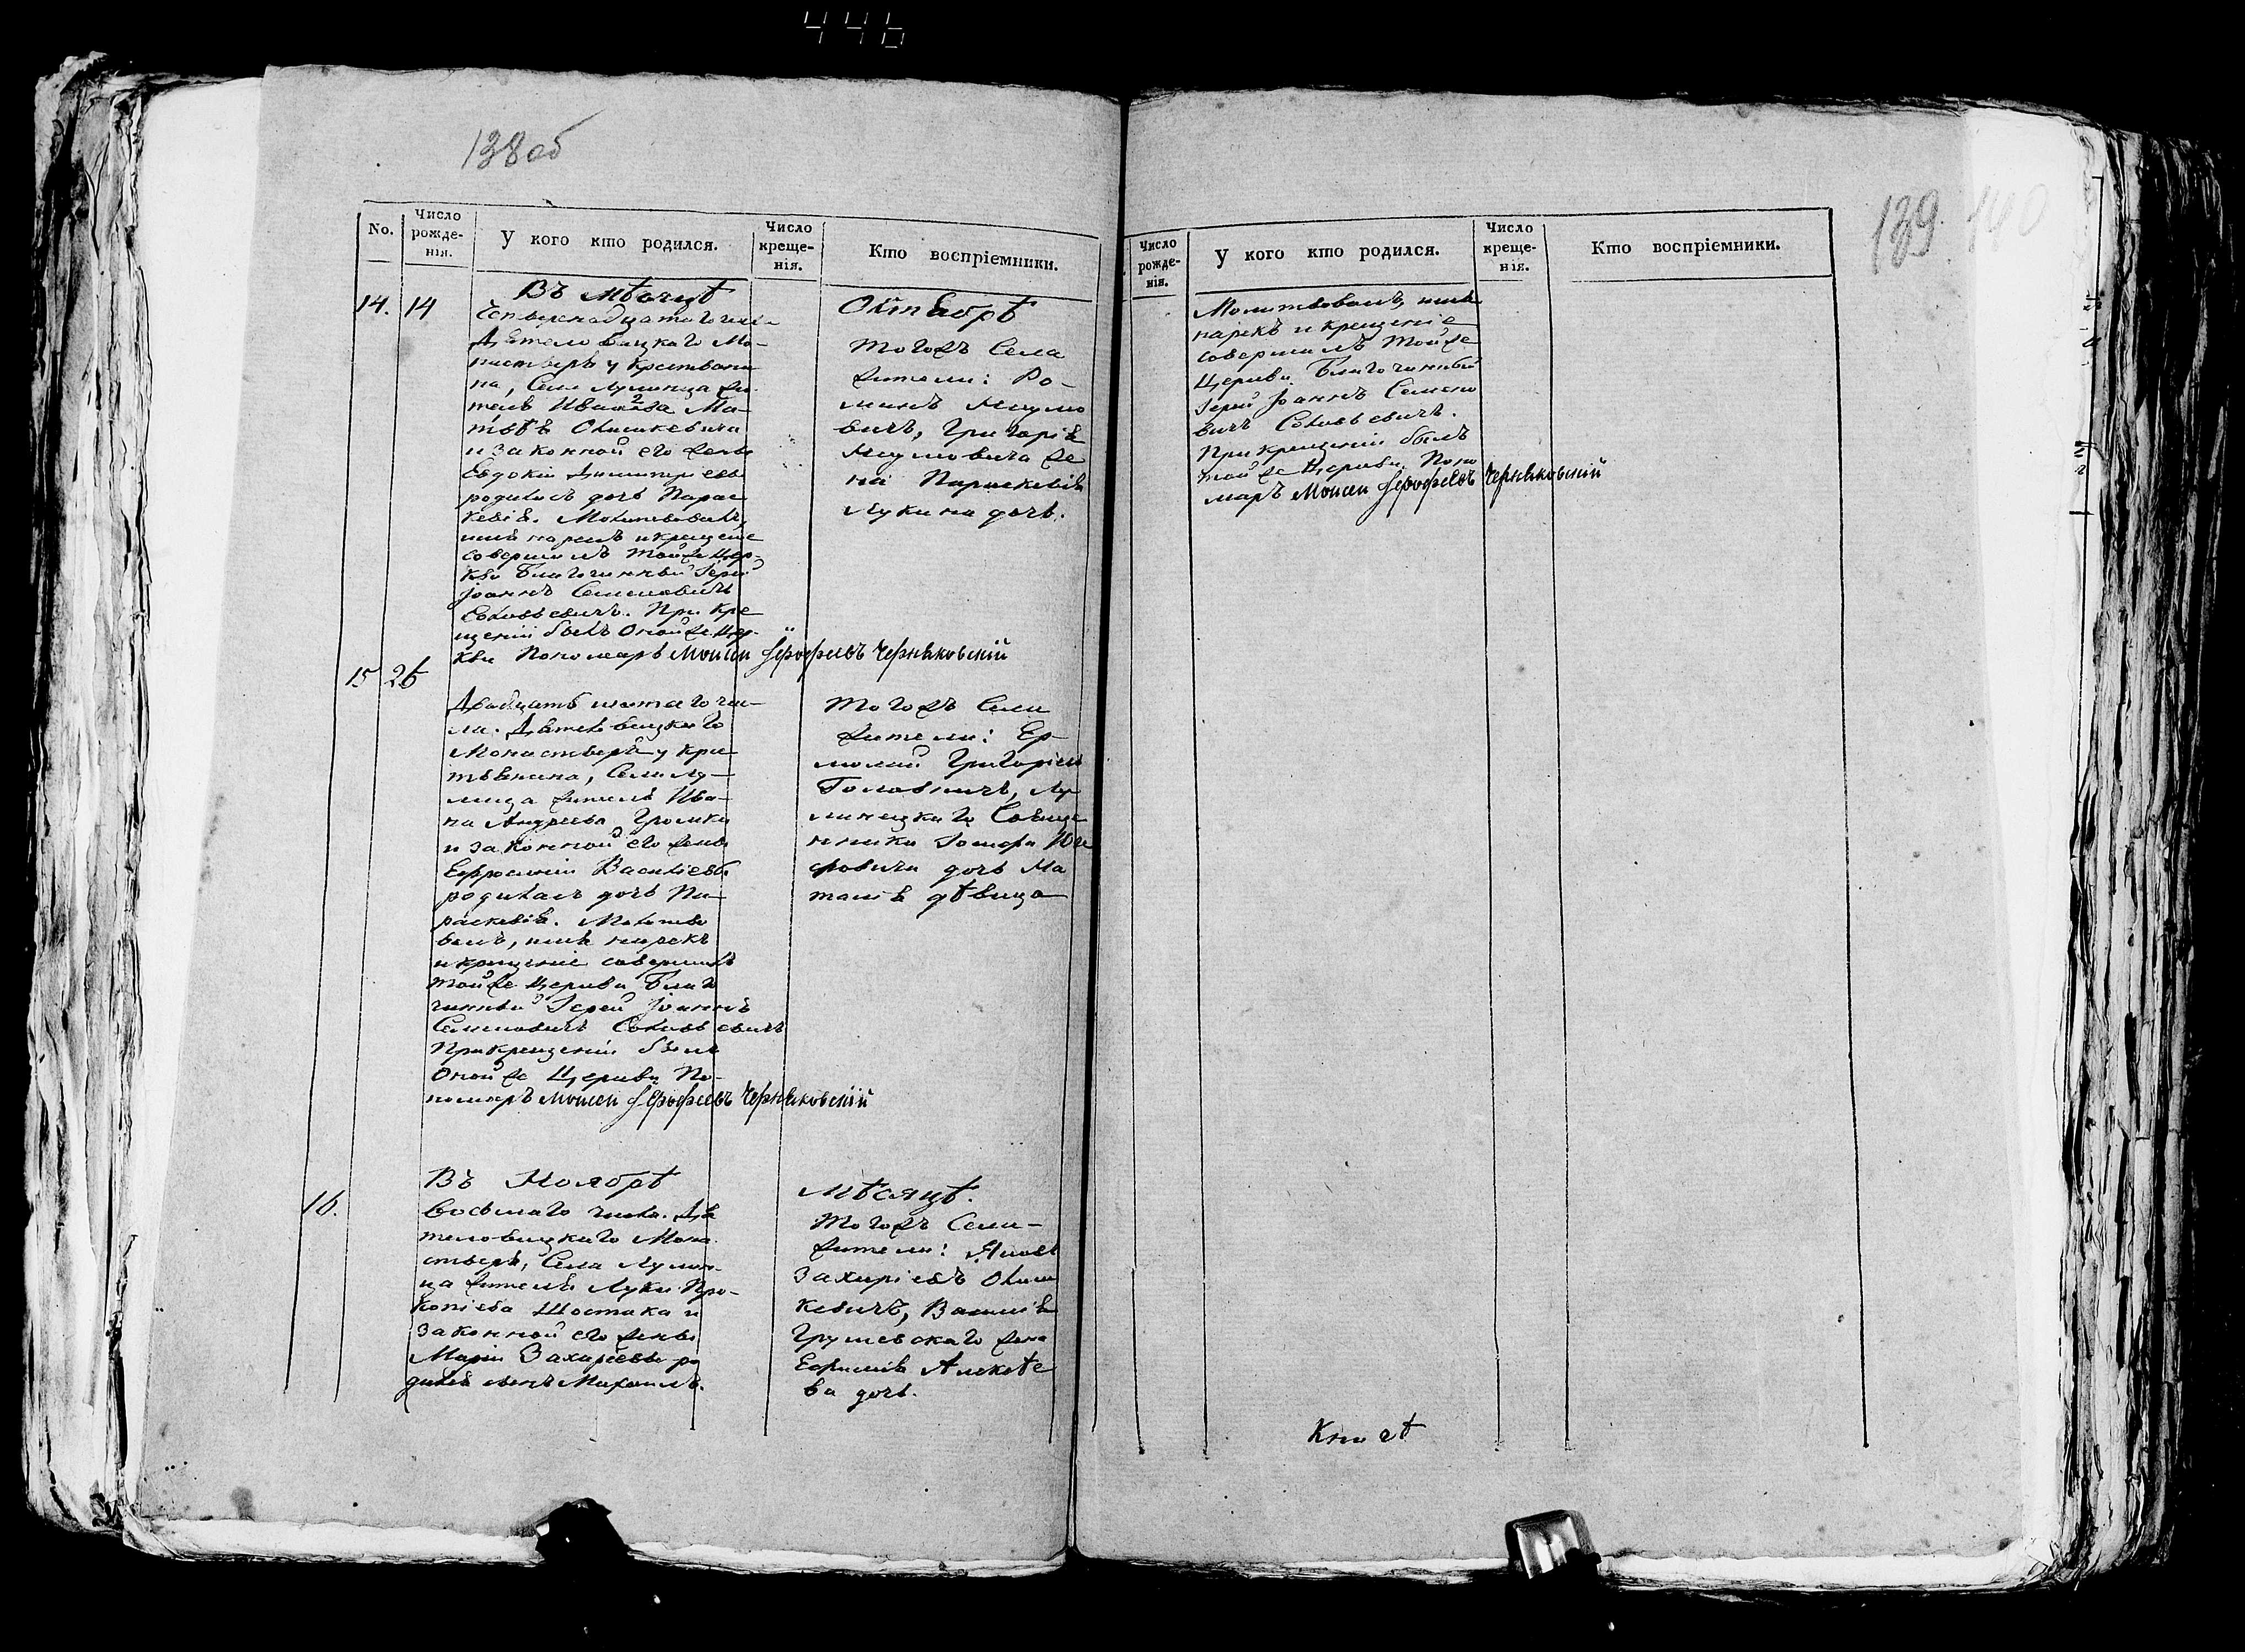 446
138 об
No.
Число рожде-
нія.
У кого кто родился.
Число креще-
нія.
Кто воспріемники.
Въ мѣсяцѣ
Октябрѣ
14. 14
Четырнадцатаго чис
Дятеловицкаго Мо-
настыря у крестьяни
на, Села Лунинца жи
теля Ивана Мат-
Олишкевича
и законной его жены
Евдокіи Димитріевы
родилась дочь Парас
кевія. Молитвовалъ,
имя нарекъ и крещеніе
совершилъ тойже Цер-
кви Благочинный Іерей
Іоаннъ Семеновичъ
Соловьевичъ. При кре
щеніи былъ Онойже Цер-
кви Пономарь Моисей Іерофеевъ Черняковскій
тогожъ Села
жители: Ро-
манъ Наумо
вичъ, Григорія
Наумовича же
на Параскевія
Лукина дочь.
15 26
Двадцать шестаго чи-
сла. Дятеловицкаго
Монастыря у крес
тьянина, Села Лу-
нинца жителя Ива-
на Андреева Громки
и законной его жены
Ефросиніи Васильевы
родилась дочь Па-
раскевія. Молитво
валъ, имя нарекъ
и крещеніе совершилъ
тойже Церкви Благо
чинный Іерей Іоаннъ
Семеновичъ Соловьевичъ
При крещеніи былъ
Онойже Церкви По-
номарь Моисей Іерофеевъ Черняковскій
тогожъ Села
жители: Ер-
молай Григоріевъ
Головничъ, Лу
нинецкаго Священ
ника
дочь На
талія дѣвица
Въ Ноябрѣ
мѣсяцѣ.
16.
Восьмаго числа. Дя
теловицкаго Мона
стыря, Села Лунин-
ца жителя Луки Про-
копіева Шостака и
законной его жены
Маріи Захаріевы ро
дился сынъ Михаилъ.
тогожъ Села-
жители: Яковъ
Захаріевъ Олиш
кевичъ, Василія
Грушевскаго жена
Евфимія Алексѣе
ва дочь.
139. 140
Число рожде-
нія.
У кого кто родился.
Число креще-
нія.
Кто воспріемники.
Молитвовалъ, имя
нарекъ и крещеніе
совершилъ тойже
Церкви Благочинный
Іерей Іоаннъ Семено
вичъ Соловьевичъ.
При крещеніи былъ
тойже Церкви Поно
марь Моисей Іерофеевъ Черняковскій